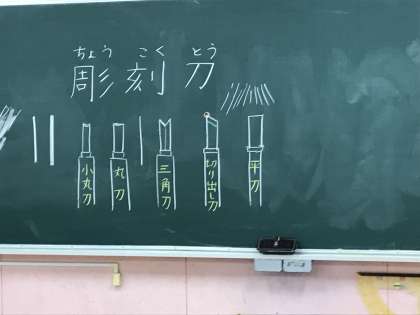 ちょうこくとう
彫刻刀
小丸刀
丸刀
三角刀
切り出し刀
平刀